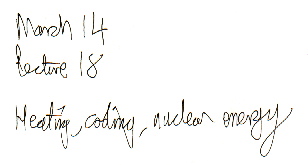 March 14
Lecture 18
Heating, coding, nuclear energy